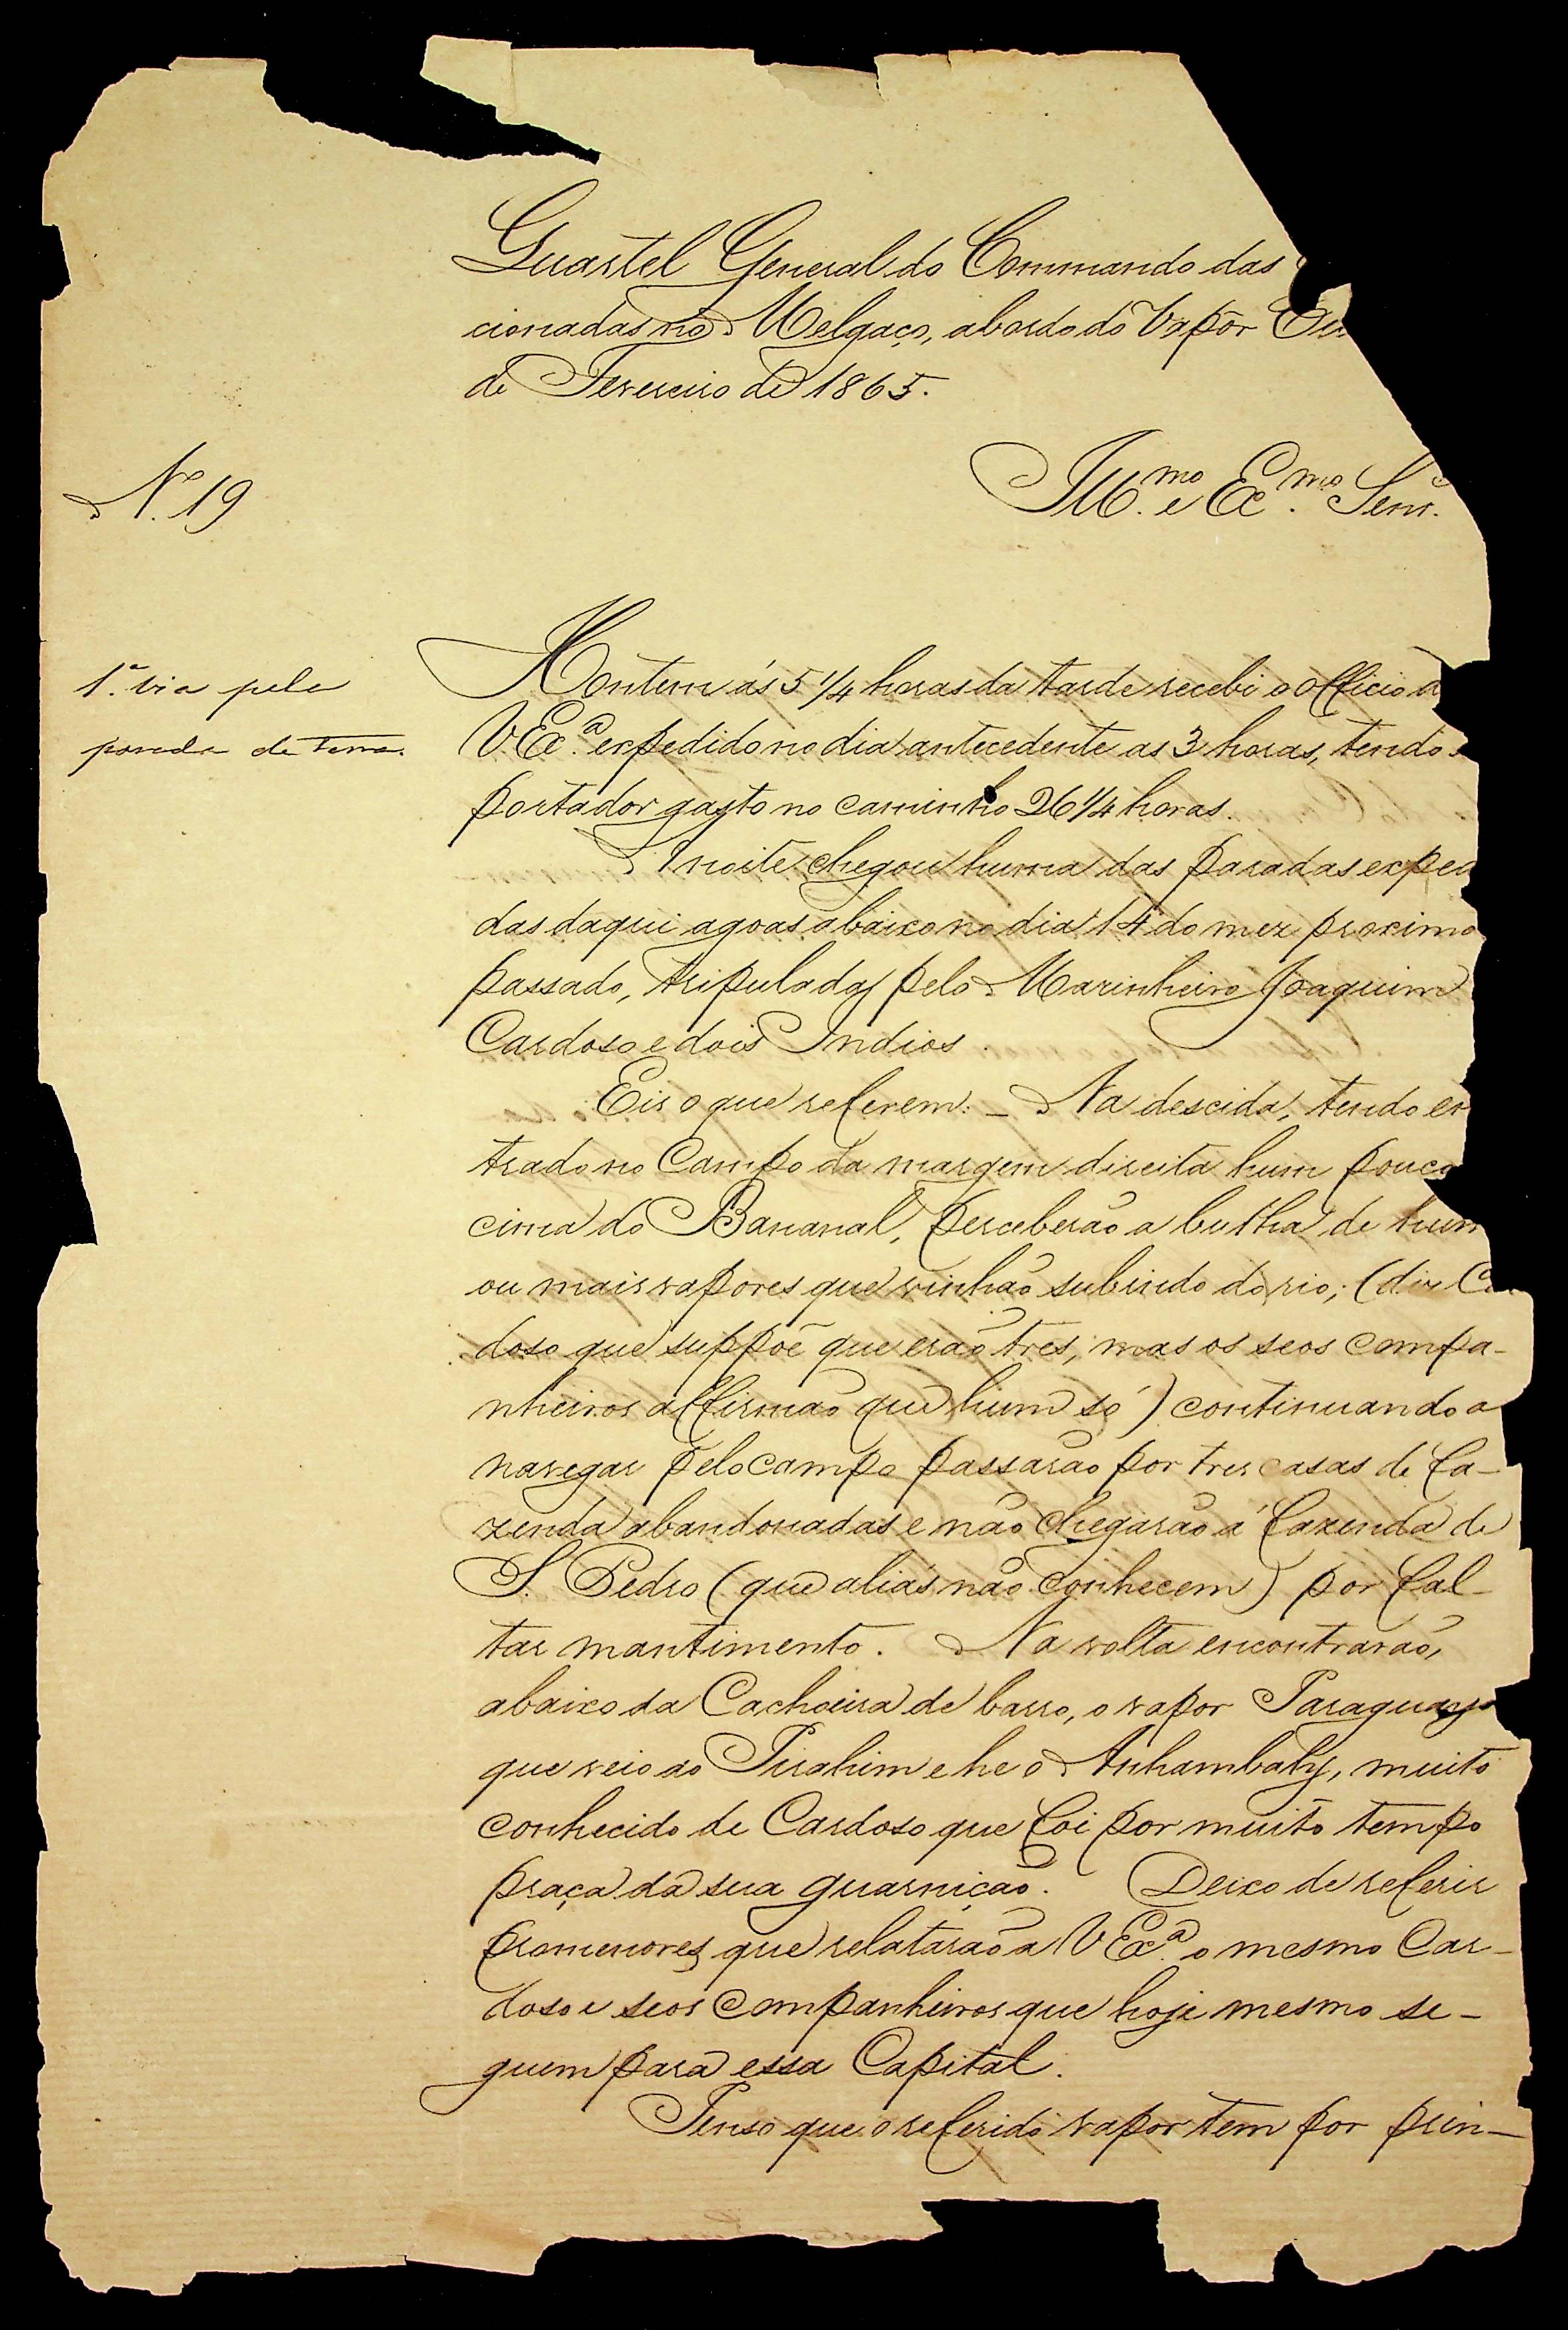 Quartel General do Commando das
cionadas no Melgaço, abordo do Vapôr
de Fevereiro de 1865.
Nº 19
Illmo. e Exmo. Senr.
1ª via pela
parada de terra.
Hontem ás 5 1/4 horas da tarde recebi o officio d
V Exª expedido no dia antecedente as 3 horas, tendo
portador gasto no caminho 26 1/4 horas.
A noite chegou huma das paradas exped
das daqui agoas abaixo no dia 14 do mez proximo
passado, tripulada pelo Marinheiro Joaquim
Cardoso e dois Indios.
Eis o que referem: _ Na descida, tendo en
trado no Campo da margem direita hum pouco
cima do Bananal, perceberão a bulha de hum
ou mais vapores que vinhão subindo do rio; (diz Ca
doso que suppõe que erão tres, mas os seos compa-
nheiros affirmão que hum só) continuando a
navegar pelo campo passarão por tres casas de fa-
zenda abandonadas e não chegarão á fazenda de
S. Pedro (que aliás não conhecem) por fal-
tar mantimento. Na volta encontrarão,
abaixo da Cachoeira de barro, o vapor Paraguayo
que veio ao Pirahim e he o Anhambahy, muito
conhecido de Cardoso que foi por muito tempo
praça da sua guarnição. Deixo de referir
promenores que relatarão a V Exª o mesmo Car-
doso e seos companheiros que hoje mesmo se-
guem para essa Capital.
Penso que o referido vapor tem por prin-